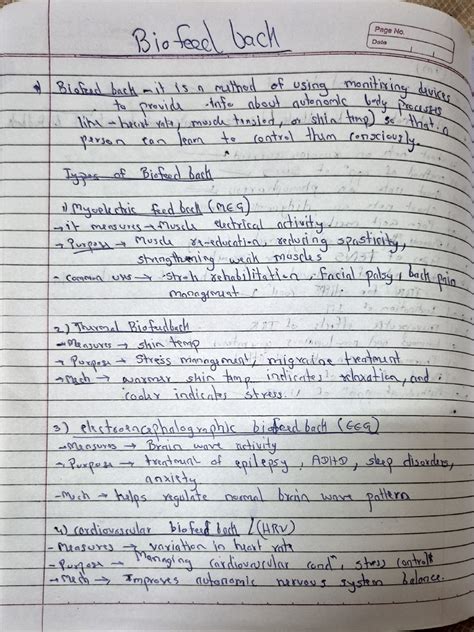 Biofeed back
Page No.
Date
Biofeed back - it is a method of using monitiring devices
to provide info about autonomic body processes
like - heart rate, muscle tension, or skin temp) so that a
person can learn to control them consciously.
Types of Biofeed back
1) Myoelectric feed back (MEG)
→ it measures → Muscle electrical activity
→ Purpose → Muscle re-education, reducing spasticity,
strengthening weak muscles
- Common uses → Strok rehabilitation. Facial palsy, back pain
management.
2) Thermal Biofeedback
- Measures → skin temp
→ Purpose → Stress management, migraine treatment
→ Mech → warmer skin temp indicates relaxation, and
cooler indicates stress.
3) electroencephalographic biofeed back (EEG)
- Measures → Brain wave activity
→ Purpose → treatment of epilepsy, ADHD, sleep disorders,
anxiety
- Mech → helps regulate normal brain wave pattern
4) Cardiovascular biofeed back (HRV)
- Measures → variation in heart rate
- Purpose → Managing cardiovascular condⁿ, stress control
→ Mech → Improves autonomic nervous system balance.